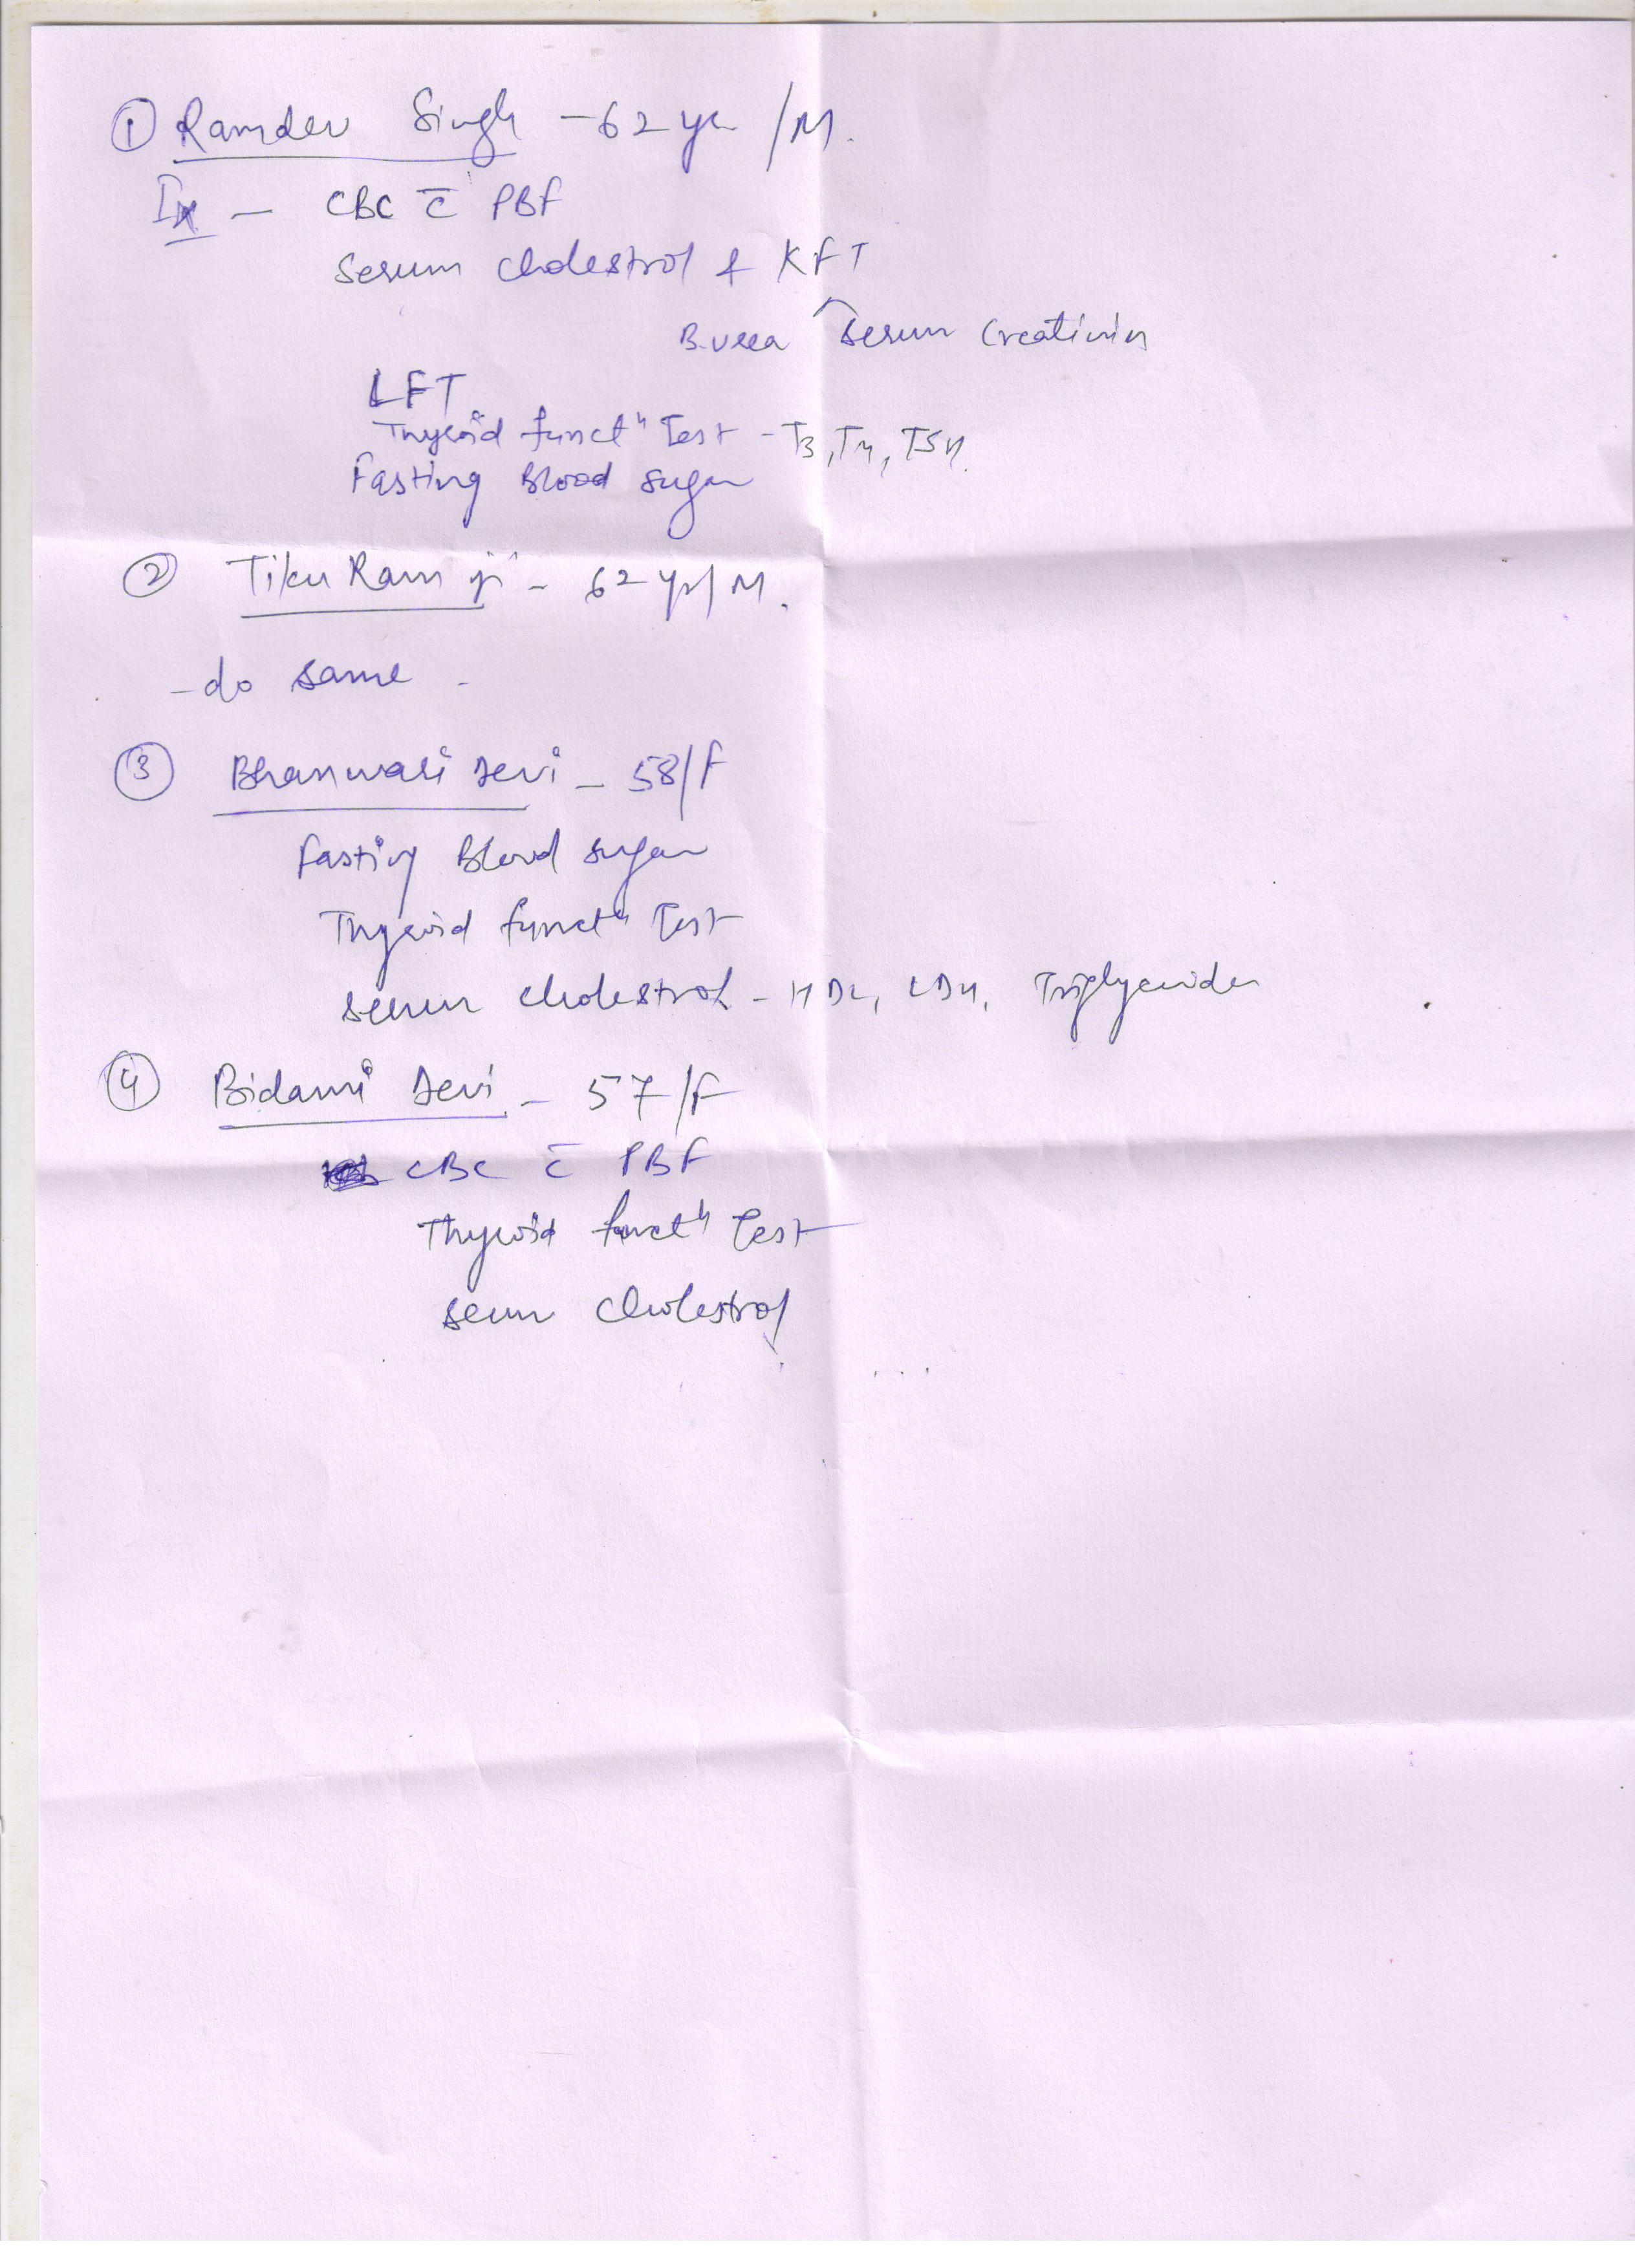 ① Ramdev Singh - 62 yr /M.
Ix - CBC c̄ PBF
Serum Cholestrol & KFT
B.urea Serum Creatinin
LFT
Thyroid functⁿ Test - T3, T4, TSH
Fasting Blood sugar
② Tiku Ram ji - 62 yr/M.
- do same -
③ Bhanwari Devi - 58/F
Fasting Blood sugar
Thyroid functⁿ Test
serum cholestrol - HDL, LDH, Triglycerides
④ Bidami Devi - 57/F
CBC c̄ PBF
Thyroid functⁿ Test
serum Cholestrol